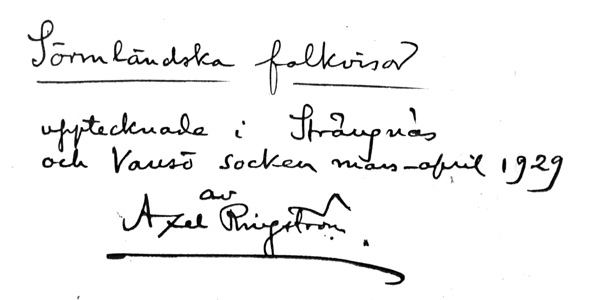 Sörmländska folkvisor
upptecknade i Strängnäs
och Vansö socken mars-april 1929
av
Axel Ringström.